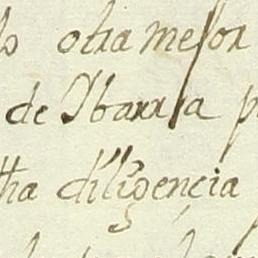 otra mejor
de Ybarra p
tha diligencia